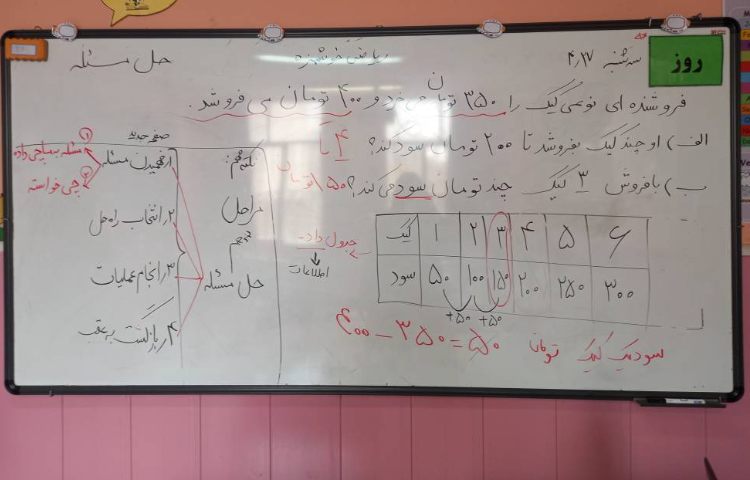 روز
سه شنبه ۴,۱۷
ریاضی خوشمزه
حل مسئله
فروشنده ای نوعی کیک را ۳۵۰ تومان می خرد و ۴۰۰ تومان می فروشد.
الف) او چند کیک بفروشد تا ۲۰۰ تومان سود کند؟ ۴ تا
ب) با فروش ۳ کیک چند تومان سود می کند؟ ۱۵۰ تومان
کیک ۱ ۲ ۳ ۴ ۵ ۶
سود ۵۰ ۱۰۰ ۱۵۰ ۲۰۰ ۲۵۰ ۳۰۰
+۵۰ +۵۰
جدول داده
اطلاعات
۴۰۰ - ۳۵۰ = ۵۰ تومان سود یک کیک
نکته مهم:
مراحل
مهم
حل مسئله
۱. فهمیدن مسئله
۱ مسئله به ما چی داده
۲ چی خواسته
۲. انتخاب راه حل
۳. انجام عملیات
۴. بازگشت به عقب